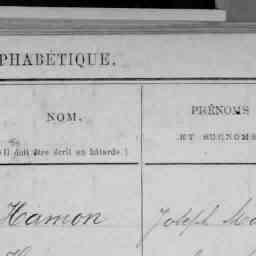 PHABÉTIQUE.
NOM.
PRÉNOMS
(Il doit être écrit en bâtarde.)
ET SURNOMS
Hamon
Joseph